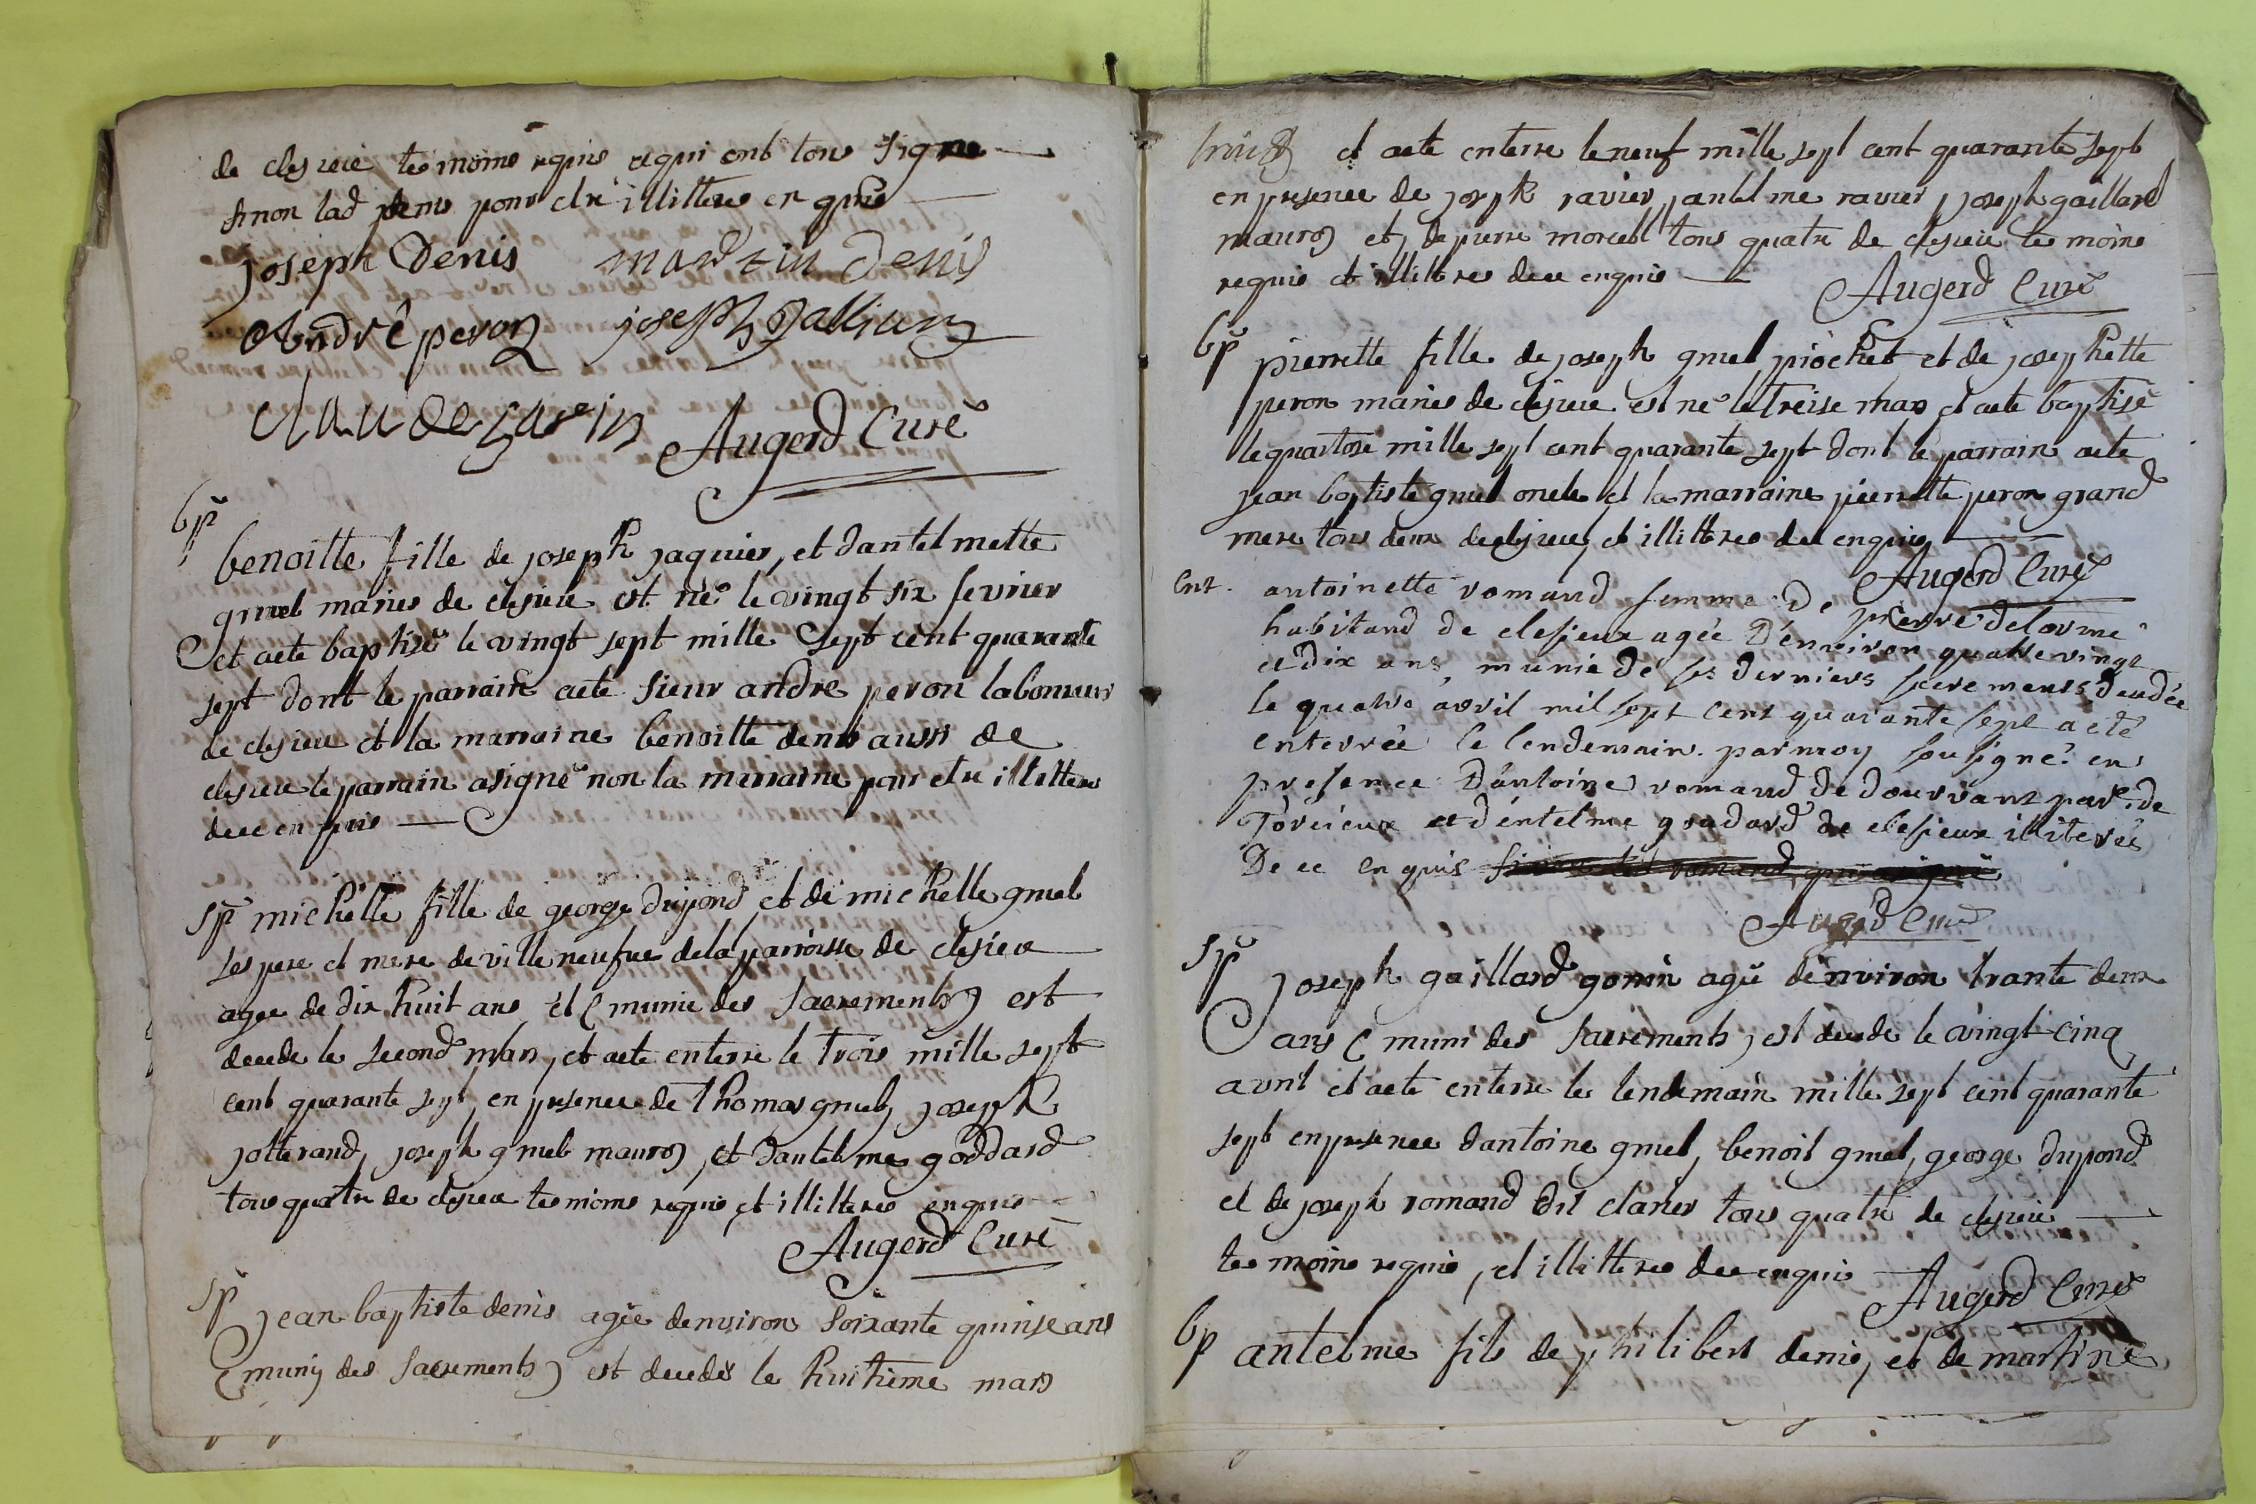 de clesieu temoins requis et qui ont tous signe
sinon lad denis pour etre illittere enquis
joseph Denis martin denis
André peron joseph galliard
claude garin Augerd Curé
bp
benoitte fille de joseph jaquier, et dantelmette
gruel maries de clesieu est née le vingt six fevrier
et aete baptisé le vingt sept mille sept cent quarante
sept dont le parrain aete sieur andre peron laboureur
de clesieu et la marraine benoitte denis aussi de
clesieu le parrain asigné non la marraine pour etre illittere
dece enquis
Sp michelle fille de george dupond et de michelle gruel
ses pere et mere de ville neufve de la parroisse de clesieu
agee de dix huit ans et (munie des sacrements) est
decede le second mars, et aete enterre le trois mille sept
cent quarante sept, en presence de thomas gruel, joseph
jotterand, joseph gruel mauros, et dantelme goddard
tous quatre de clesieu temoins requis et illitteres enquis
Augerd Curé
Sp jean baptiste denis agée denviron soixante quinse ans
(muny des sacrements) est decedé le huitieme mars
et aete enterre le neuf mille sept cent quarante sept
en presence de joseph ravier, antelme ravier, joseph gaillard
mauros et de pierre morcel tous quatre de clesieu temoins
requis et illittres dece enquis Augerd Curé
bp pierrette fille de joseph gruel piochet et de josephette
peron maries de clesieu est né le treise mars et aete baptisé
le quatorse mille sept cent quarante sept dont le parrain aete
jean baptiste gruel oncle et la marraine pierrette peron grand
mere tous deux de clesieu, et illitteres dece enquis
Augerd Curé
Ent. antoinette romand femme de pierre delorme
habitand de clesieux agée D'environ quatre vingt
et dix ans, munie de ses derniers sacrements decedée
le quatre avril mil sept cent quarante sept a eté
enterrée le lendemain par moy sousigné en
presence D'antoine romand de dourvant par. de
Torcieux et d'entelme godard de clesieux illiterés
De ce enquis
Augerd Curé
Sp joseph gaillard gonin agé denviron trante deux
ans (muni des sacrements) est decede le vingt cinq
avril et aete enterre le lendemain mille sept cent quarante
sept en presence dantoine gruel, benoit gruel, george dupond
et de joseph romand dit claries tous quatre de clesieu
temoins requis, et illitteres dece enquis Augerd Curé
bp antelme fils de philibert denis, et de martine